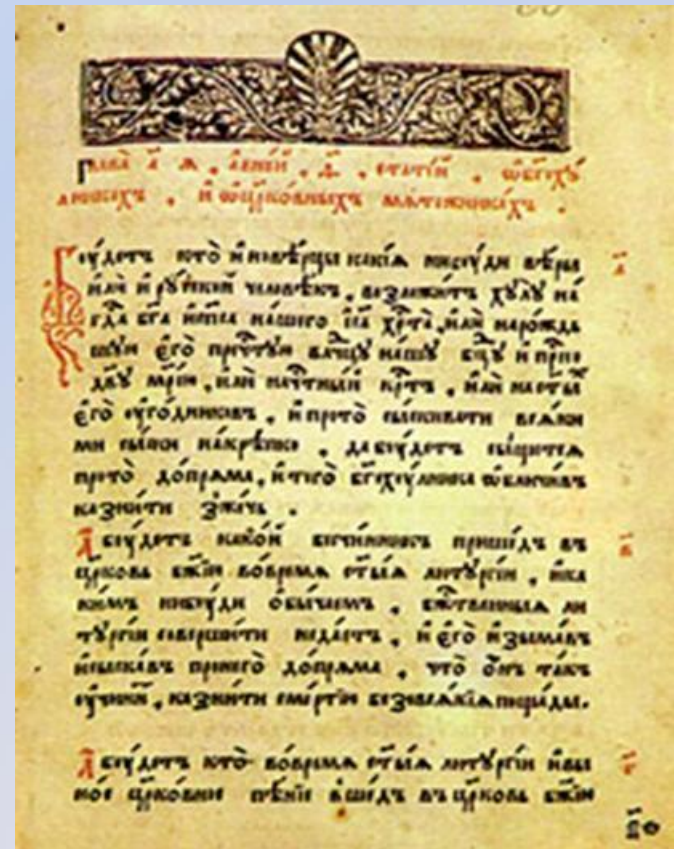 Глава̀ а҃ ѧ , а в не́й , ѳ҃ , стате́й , ѡ бг҃оху́
лникехъ , и ѡ цр҃ко́вныхъ мѧте́жникахъ .
Бꙋ́детъ кто̀ и́нове́рцы какі́ѧ нибꙋди ве́ры а҃
и́лѝ и рꙋ́ский человѣ́къ , возло́житъ хꙋлꙋ̀ на́
гдⷭ҇а бг҃а и сп҃са на́шего іс҃а хрⷭ҇та̀ , и́лѝ на ро́ждь
шꙋю є҆гѡ̀ пречⷭ҇тꙋю влⷣчцꙋ на́шꙋ бцⷣꙋ и прⷭ҇но
дв҃ꙋ мр҃і́ю , и́лѝ на чⷭ҇тны́й крⷭ҇тъ , и́лѝ на ст҃ы́хъ
є҆го̀ ᲂу҆го́дниковъ , и про то̀ сы́скивати всѧ́ки
ми сы́ски накрѣ́пко , да бꙋ́детъ сы́щетсѧ
про то̀ до́прѧма , и того̀ бг҃охꙋ́лника ѡбличи́въ
казни́ти зже́чь .
А҆ бꙋ́детъ како́й безчи́нникъ прише́дъ въ в҃
цр҃ковь бж҃ію во́времѧ ст҃ы́ѧ литꙋргі́и , и ка
ки́мъ нибꙋди о́бы́чаемъ , бжⷭ҇твенныѧ ли
тꙋргі́и соверши́ти не да́стъ , и є҆го̀ и́зыма́въ
и сыска́въ про него̀ до́прѧма , что̀ о́нъ та́къ
ᲂу҆чини́тъ , казни́ти сме́ртію безо всѧ́кіѧ поща́ды .
А҆ бꙋ́детъ кто̀ во́времѧ ст҃ы́ѧ литꙋргі́и и вы҆ г҃
но́е цр҃ко́вное пѣ́ніе вше́дъ въ цр҃ковь бж҃ію